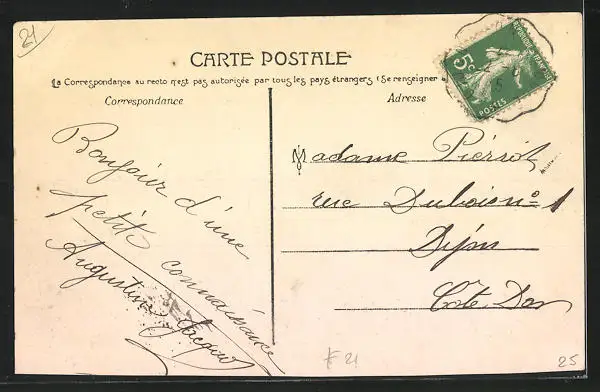 21
CARTE POSTALE
La Correspondance au recto n'est pas autorisée par tous les pays étrangers (Se renseigner
Correspondance
Adresse
RÉPUBLIQUE FRANÇAISE
5c
POSTES
Bonjour d'une
petite connaissance
Augustine Jacquin
Madame Pierrot
rue Dubois no 1
Dijon
Cote Dor
F 21
25